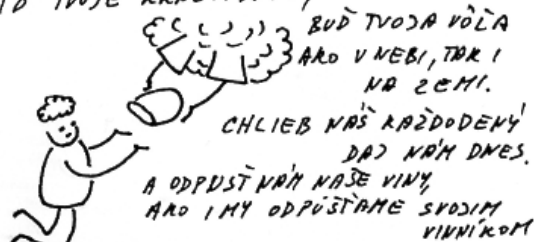 TVOJE
BUĎ TVOJA VÔĽA
AKO V NEBI, TAK I
NA ZEMI.
CHLIEB NÁŠ KAŽDODENÝ
DAJ NÁM DNES.
A ODPUSŤ NÁM NAŠE VINY,
AKO I MY ODPÚŠŤAME SVOJIM
VINNÍKOM